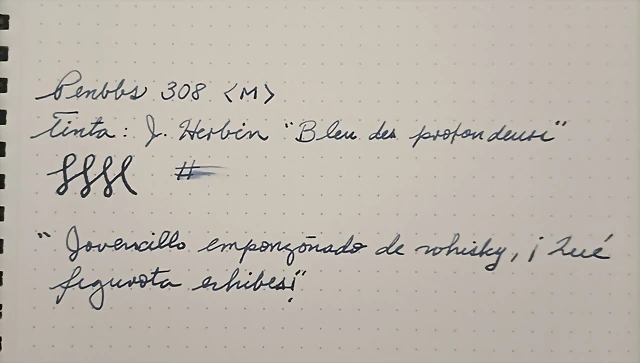 Penbbs 308 <M>
Tinta: J. Herbin "Bleu des profondeurs"
#
"Jovencillo emponzoñado de whisky, ¡Qué
figurota exhibes!"